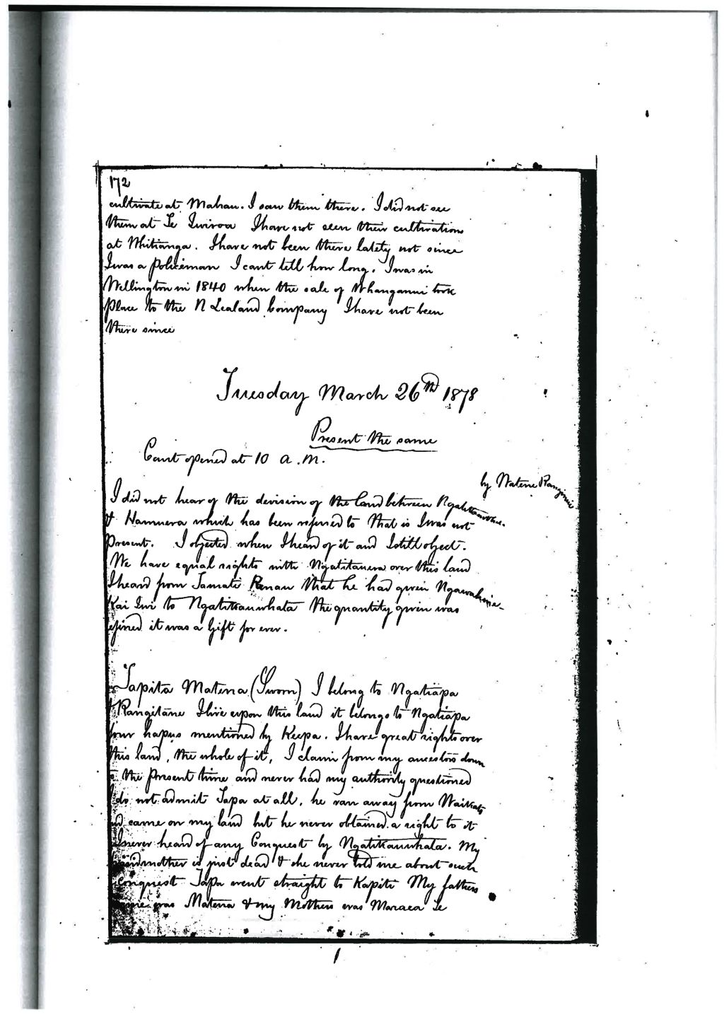 172
cultivate at Mahau. I saw them there. I did not see
them at Te Iwiroa I have not seen their cultivation
at Whitianga. I have not been there lately not since
I was a Policeman I cant tell how long. I was in
Wellington in 1840 when the sale of Whanganui took
Place to the N Zealand Company I have not been
there since
Tuesday March 26th 1878
Present the same
Court opened at 10 A.M.
by Watene
I did not hear of the division of the land between
& Hamuera which has been referred to that is I was not
Present. I objected when I heard of it and I still object.
We have equal rights with Ngatitumera over this land
I heard from Tamati Ranau that he had given
Kai Iwi to Ngatikauwhata the quantity given was
efined it was a Gift for ever.
Tapita Matena (Sworn) I belong to Ngatiapa
& Rangitane I live upon this land it belongs to Ngatiapa
four hapus mentioned by Keepa. I have great rights over
this land, the whole of it, I claim from my ancestors down
the Present time and never had my authority questioned
I do not admit Tapa at all, he ran away from Waikato
and came on my land but he never obtained a right to it
I never heard of any Conquest by Ngatikauwhata. My
Grandmother is just dead & she never told me about such
Conquest Tapa went straight to Kapiti My fathers
name was Matena & my Mothers was Maraea Te